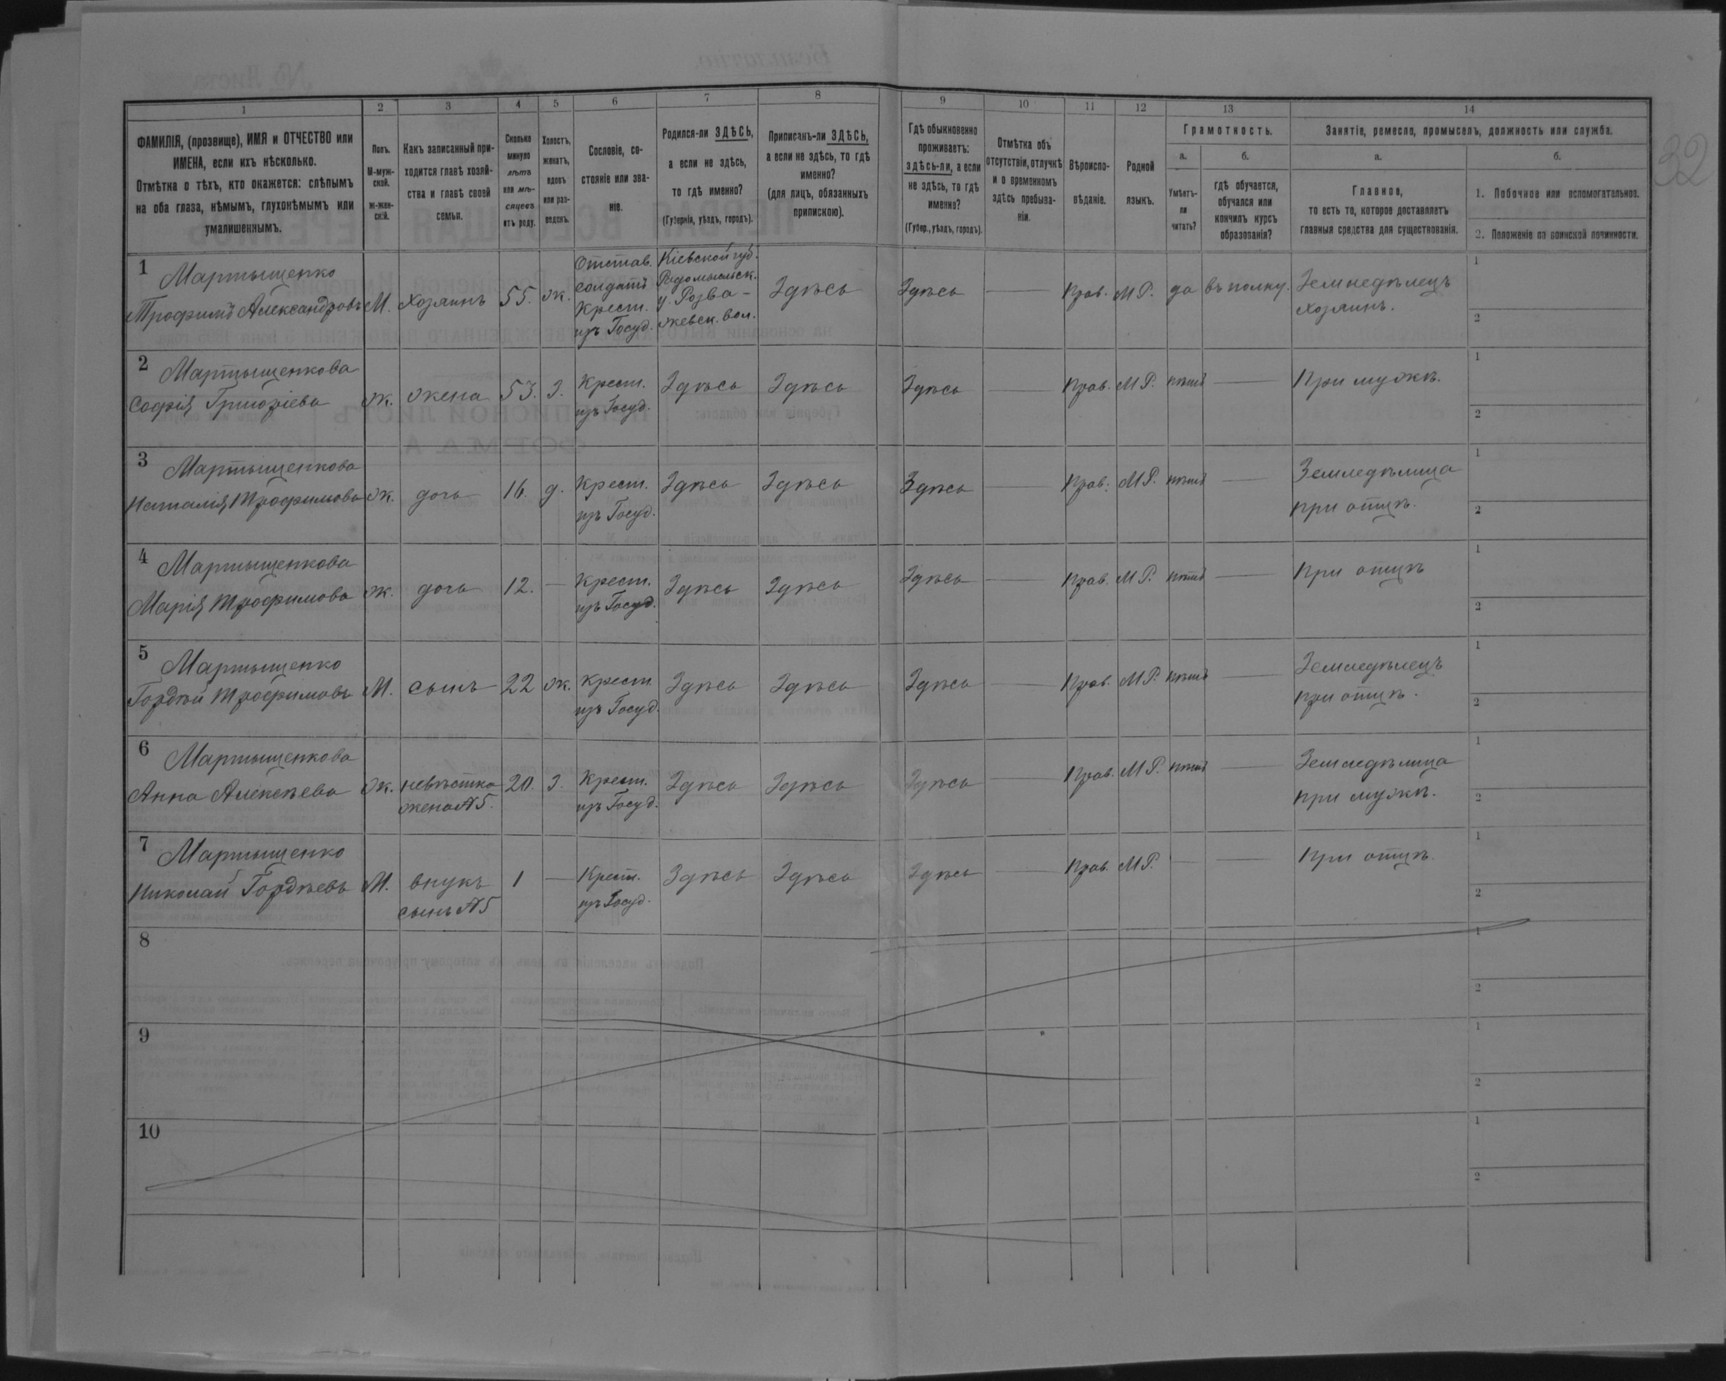 32
1
2
3
4
5
6
7
8
9
10
11
12
13
14
ФАМИЛІЯ, (прозвище), ИМЯ и ОТЧЕСТВО или
ИМЕНА, если ихъ нѣсколько.
Отмѣтка о тѣхъ, кто окажется: слѣпымъ
на оба глаза, нѣмымъ, глухонѣмымъ или
умалишеннымъ.
Полъ.
М-муж-
ской.
Ж-жен-
скій.
Какъ записанный при-
ходится главѣ хозяй-
ства и главѣ своей
семьи.
Сколько
минуло
лѣтъ
или мѣ-
сяцевъ
отъ роду.
Холостъ,
женатъ,
вдовъ
или раз-
веденъ.
Сословіе, со-
стояніе или зва-
ніе.
Родился-ли ЗДѢСЬ,
а если не здѣсь,
то гдѣ именно?
(Губернія, уѣздъ, городъ).
Приписанъ-ли ЗДѢСЬ,
а если не здѣсь, то гдѣ
именно?
(для лицъ, обязанныхъ
припискою).
Гдѣ обыкновенно
проживаетъ:
здѣсь-ли, а если
не здѣсь, то гдѣ
именно?
(Губер., уѣздъ, городъ).
Отмѣтка объ
отсутствіи, отлучкѣ
и о временномъ
здѣсь пребыва-
ніи.
Вѣроиспо-
вѣданіе.
Родной
языкъ.
Грамотность.
а.
Умѣетъ-
ли
читать?
б.
гдѣ обучается,
обучался или
кончилъ курсъ
образованія?
Занятіе, ремесло, промыселъ, должность или служба.
а.
Главное,
то есть то, которое доставляетъ
главныя средства для существованія.
б.
1. Побочное или вспомогательное.
2. Положеніе по воинской повинности.
1
Мартыщенко
Трофимъ Александровъ
М.
хозяинъ
55.
ж.
Отстав.
солдатъ
Крест.
изъ Госуд.
Кіевской губ.
Радомысльск.
у. Розва-
жевск. вол.
Здѣсь
Здѣсь
Прав.
М Р.
да
въ полку.
Земледѣлецъ
хозяинъ.
1
2
2
Мартыщенкова
Софія Григоріева
Ж.
жена
53.
З.
Крест.
изъ Госуд.
Здѣсь
Здѣсь
Здѣсь
Прав.
М Р.
нѣтъ
При мужѣ.
1
2
3
Мартыщенкова
Наталія Трофимова
Ж.
дочь
16.
д.
Крест.
изъ Госуд.
Здѣсь
Здѣсь
Здѣсь
Прав.
М Р.
нѣтъ
Земледѣлица
при отцѣ.
1
2
4
Мартыщенкова
Марія Трофимова
Ж.
дочь
12.
Крест.
изъ Госуд.
Здѣсь
Здѣсь
Здѣсь
Прав.
М Р.
нѣтъ
При отцѣ
1
2
5
Мартыщенко
Гордѣй Трофимовъ
М.
сынъ
22
ж.
Крест.
изъ Госуд.
Здѣсь
Здѣсь
Здѣсь
Прав.
М Р.
нѣтъ
Земледѣлецъ
при отцѣ.
1
2
6
Мартыщенкова
Анна Алексѣева
Ж.
невѣстка
жена №5.
20.
З.
Крест.
изъ Госуд.
Здѣсь
Здѣсь
Здѣсь
Прав.
М Р.
нѣтъ
Земледѣлица
при мужѣ.
1
2
7
Мартыщенко
Николай Гордѣевъ
М.
внукъ
сынъ №5
1
Крест.
изъ Госуд.
Здѣсь
Здѣсь
Здѣсь
Прав.
М Р.
При отцѣ.
1
2
8
1
2
9
1
2
10
1
2